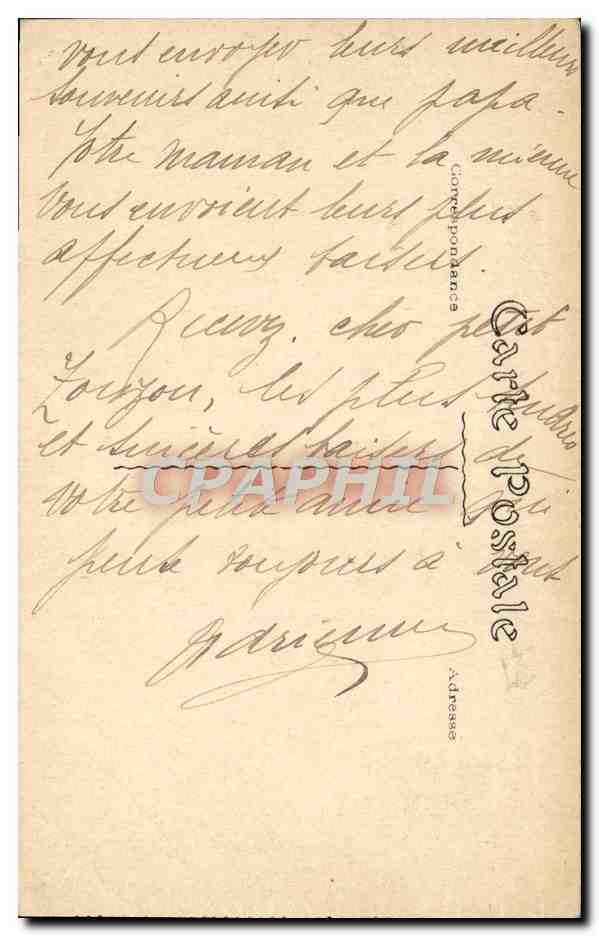 vous envoyer leurs meilleurs
souvenirs ainsi que papa.
Votre maman et la mienne
vous envoient leurs plus
affectueux baisers.
Recevez, cher petit
Zouzou, les plus
et sincères baisers de
votre petite amie qui
pense toujours à vous
Adrienne
Correspondance
Carte Postale
Adresse
CPAPHIL